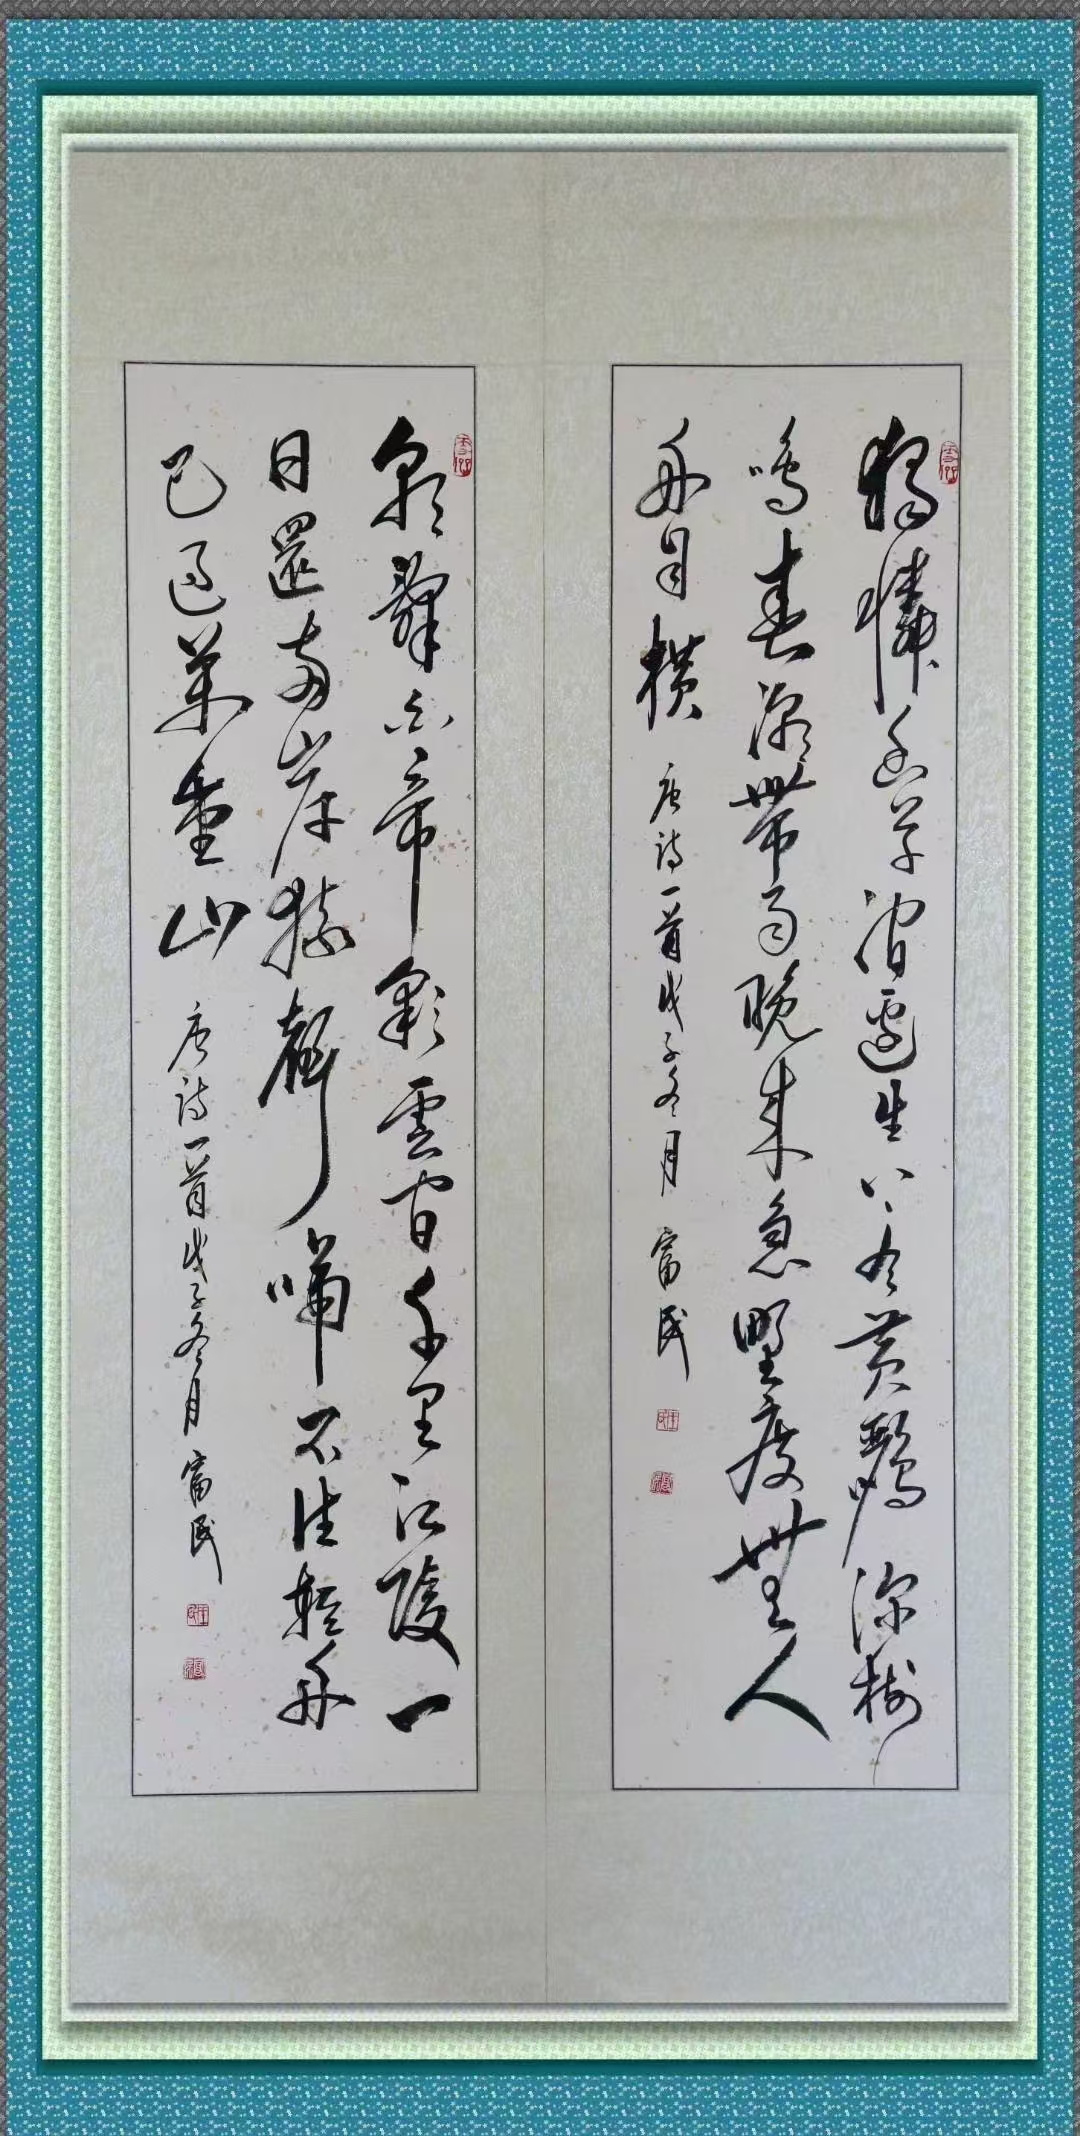 獨憐幽草澗邊生上有黄鸝深樹
鳴春潮帶雨晚來急野度無人
舟自横 唐诗一首戊子冬月 富民
朝辭白帝彩雲間千里江陵一
日還兩岸猿聲啼不住輕舟
已過萬重山 唐诗一首戊子冬月 富民